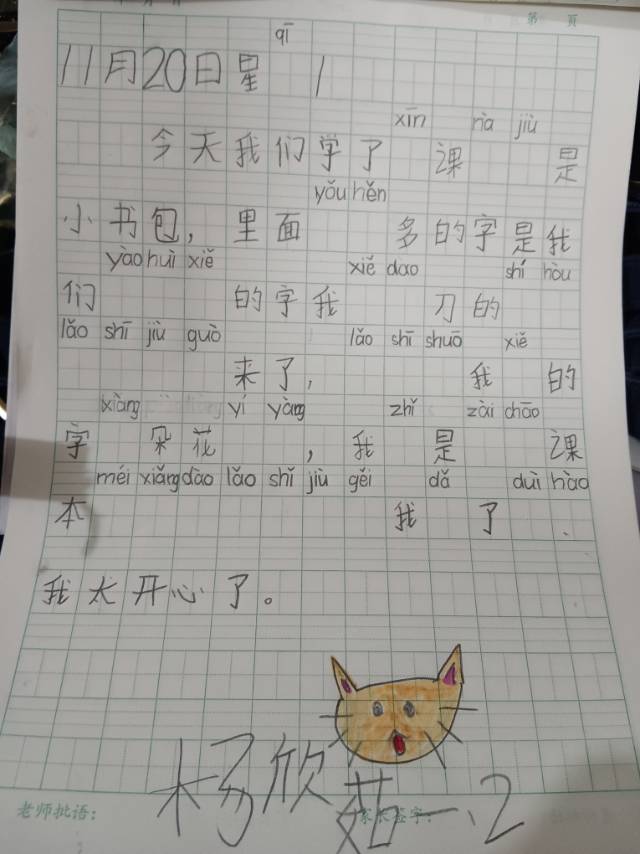 第 页
qī
11月20日星 1
xīn nà jiù
今天我们学了 课 是
yǒu hěn
小书包，里面 多的字是我
yào huì xiě xiě dao shí hòu
们 的字我 刀的
lǎo shī jiù guò lǎo shī shuō xiě
来了， 我 的
xiàng yí yàng zhǐ zài chāo
字 朵花 ，我 是 课
méi xiǎng dào lǎo shī jiù gěi dǎ duì hào
本 我 了.
我太开心了。
杨欣茹一、2
老师批语： 家长签字：